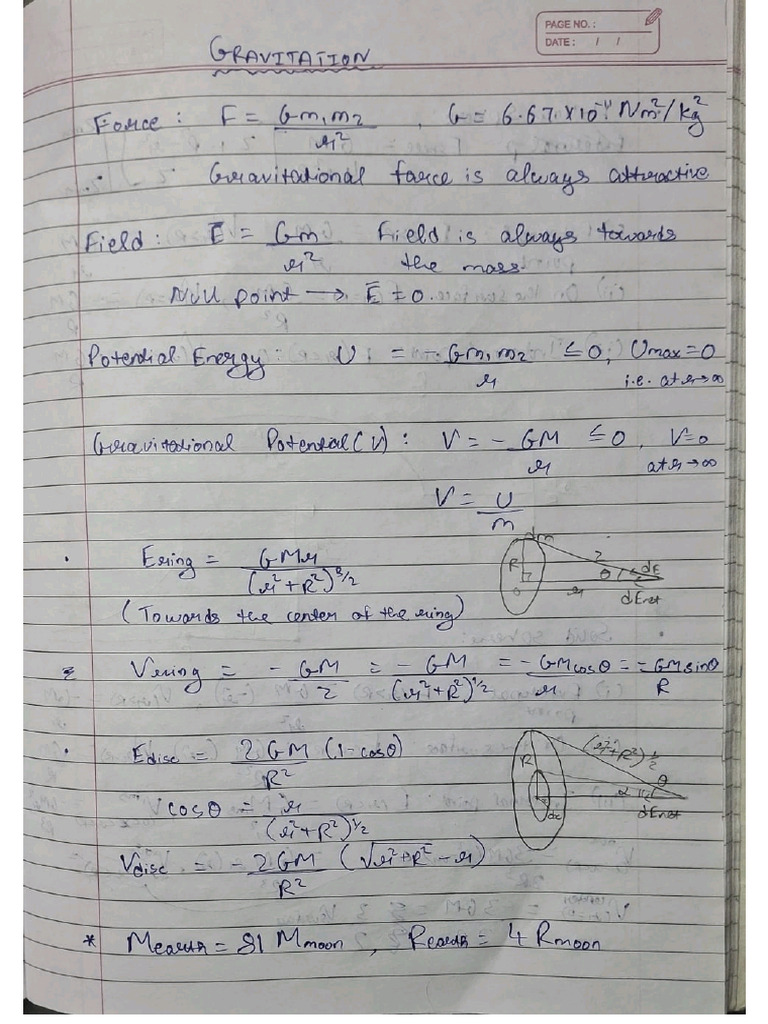 PAGE NO. :
DATE : / /
GRAVITATION
Force : F = Gm₁m₂/r² , G = 6.67 × 10⁻¹¹ Nm²/kg²
. Gravitational force is always attractive
Field : E̅ = Gm/r² Field is always towards
the mass.
Null point → E̅ = 0.
Potential Energy : U = - Gm₁m₂/r ≤ 0, Umax = 0
i.e. at r→∞
Gravitational Potential (V) : V = - GM/r ≤ 0, V=0
at r→∞
V = U/m
. Ering = GMr/(r²+R²)^3/2
dm R z θ dE O r dEnet
(Towards the center of the ring)
Vring = - GM/z = - GM/(r²+R²)^1/2 = - GMcosθ/r = - GMsinθ/R
. Edisc = 2GM/R² (1-cosθ)
R (r²+R²)^1/2 θ dEnet
cosθ = r/(r²+R²)^1/2
Vdisc = - 2GM/R² (√r²+R² - r)
* Mearth = 81 Mmoon , Rearth = 4 Rmoon